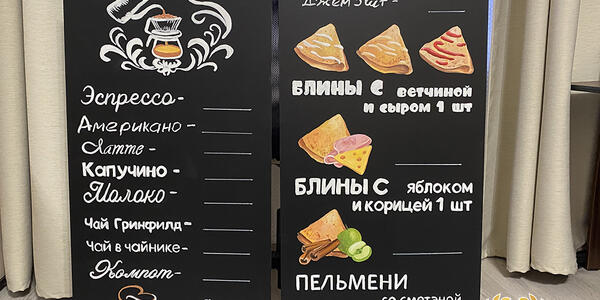 Эспрессо-
Американо-
Латте-
Капучино-
Молоко-
Чай Гринфилд-
Чай в чайнике-
Компот-
Джем 3 шт-
БЛИНЫ С ветчиной
и сыром 1 шт
БЛИНЫ С яблоком
и корицей 1 шт
ПЕЛЬМЕНИ
со сметаной